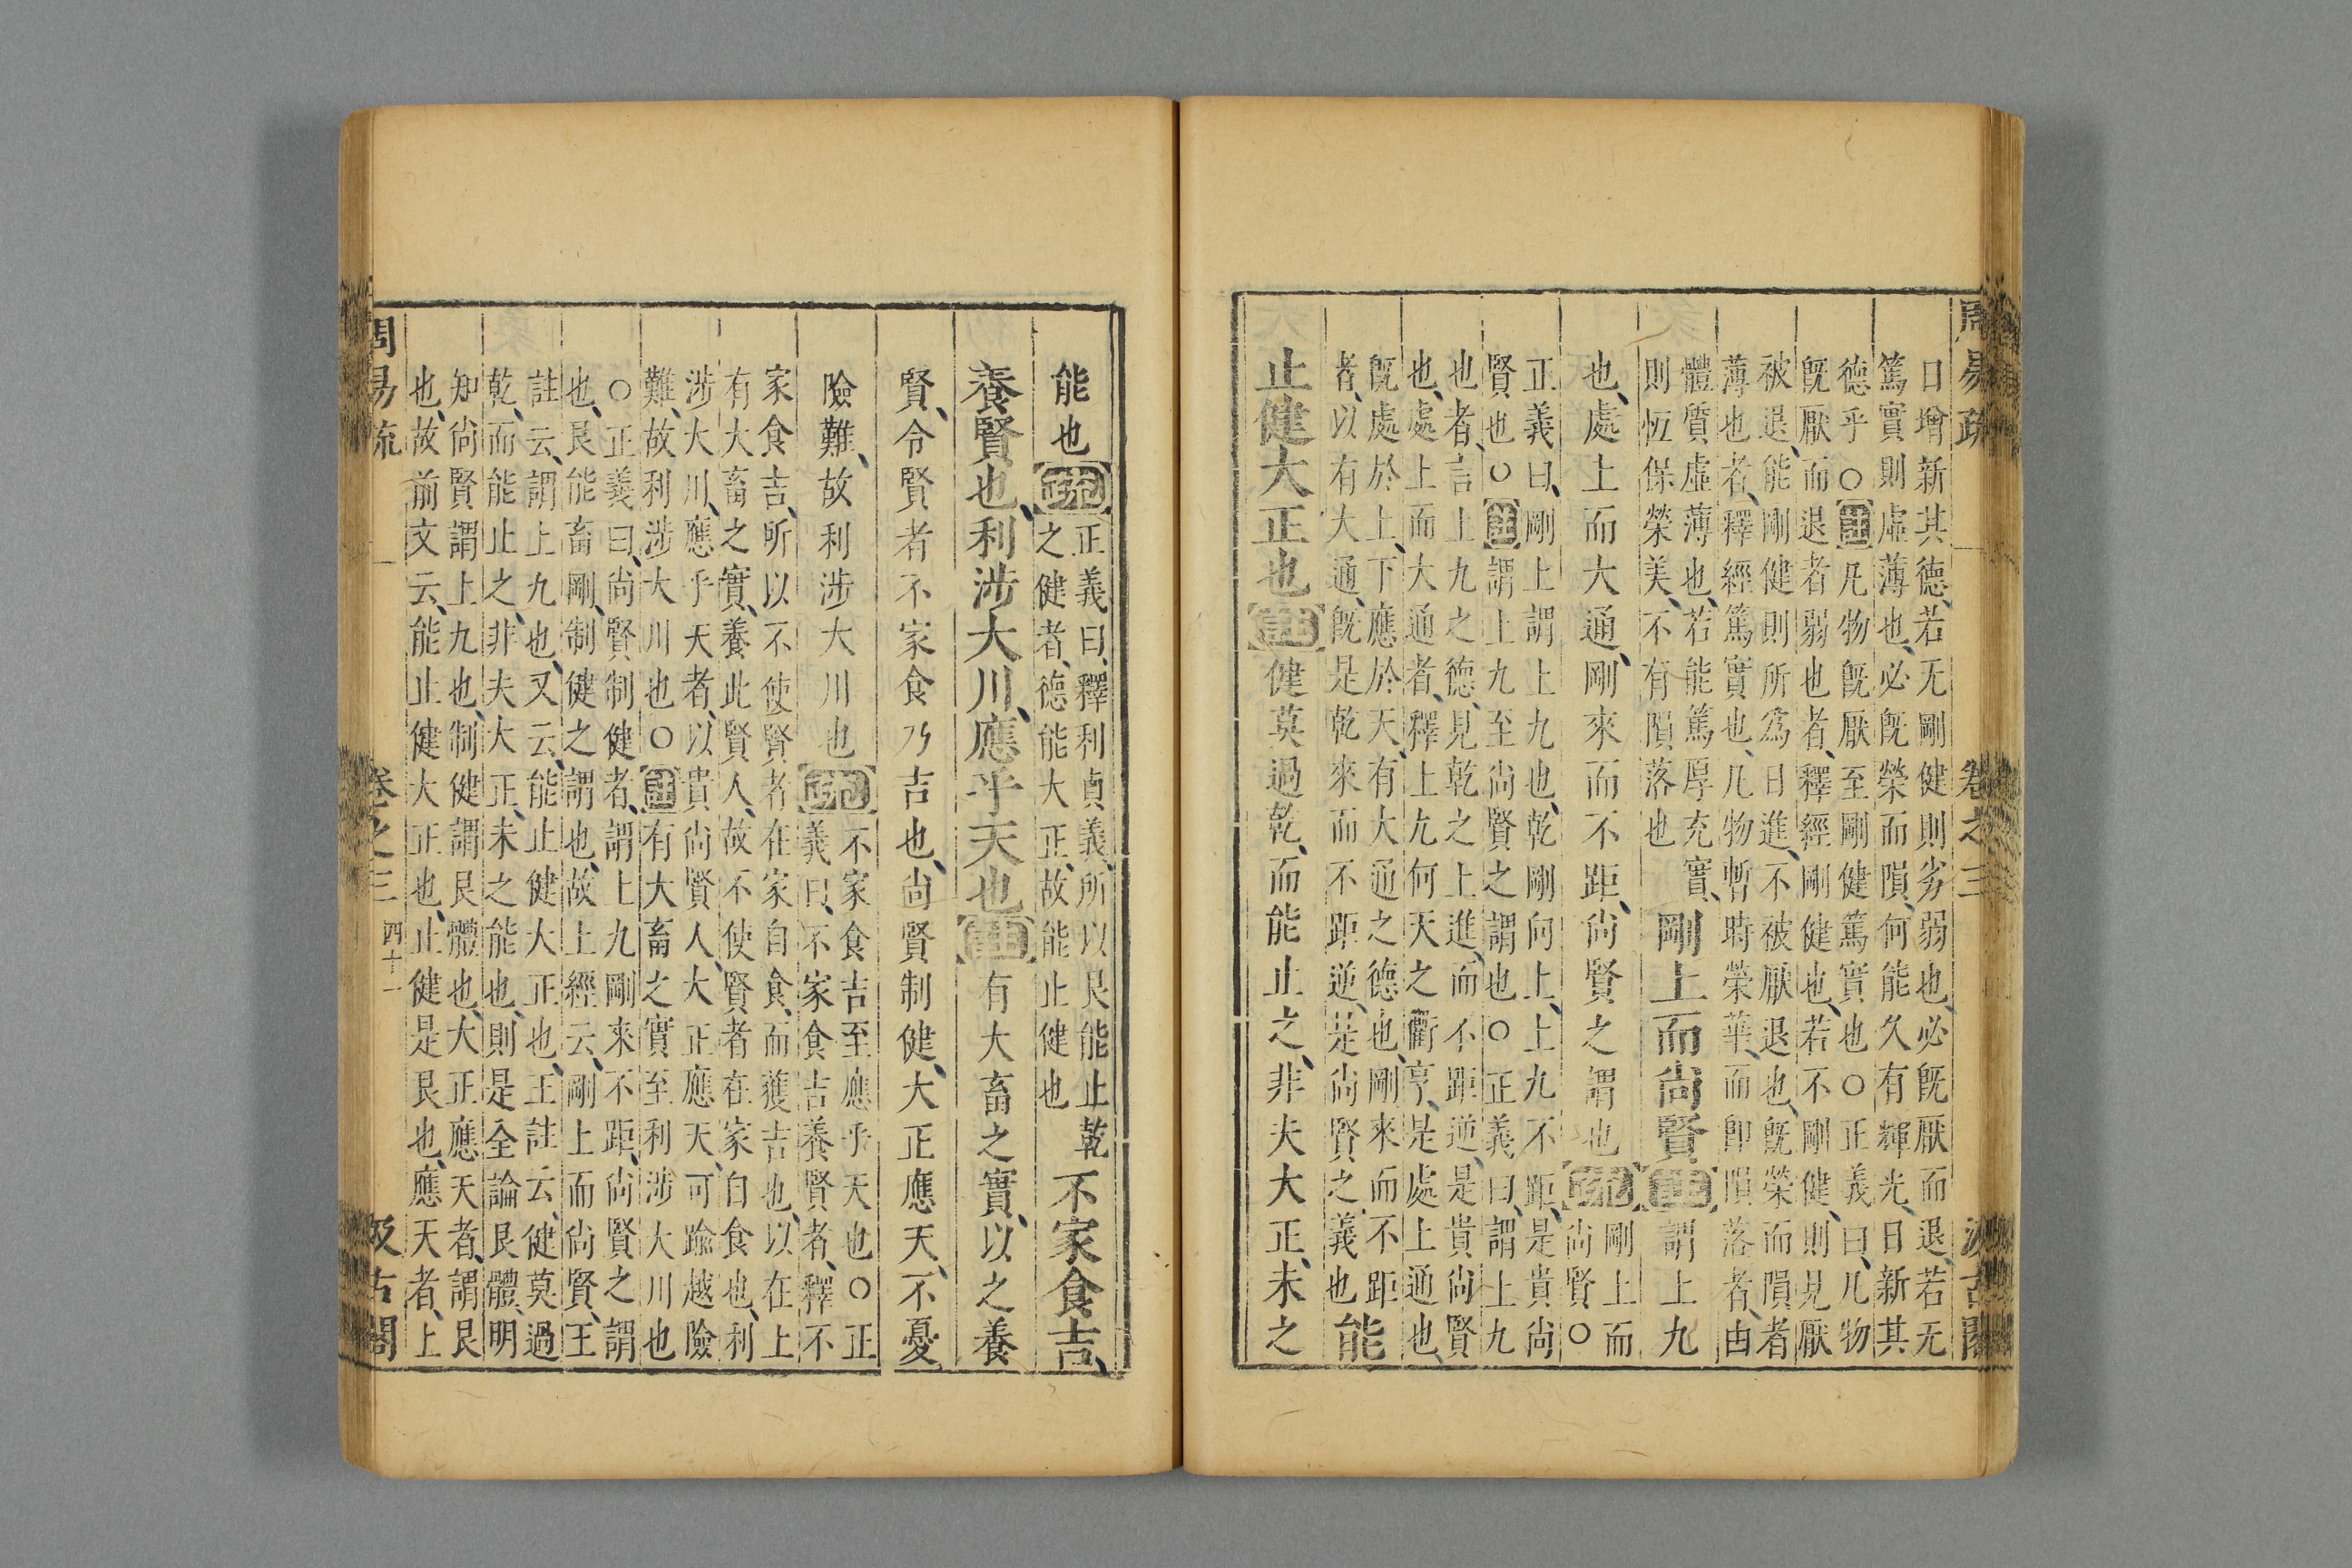 周易疏 卷之三 汲古閣
日增新其德、若无剛健則劣弱也、必旣厭而退、若无
篤實則虛薄也、必旣榮而隕、何能久有輝光、日新其
德乎○註凡物旣厭至剛健篤實也○正義曰、凡物
旣厭而退者弱也者、釋經剛健也、若不剛健、則見厭
被退、能剛健則所爲日進、不被厭退也、旣榮而隕者
薄也者、釋經篤實也、凡物暫時榮華、而卽隕落者、由
體質虛薄也、若能篤厚充實、
則恆保榮美、不有隕落也
剛上而尙賢註謂上九
也、處上而大通、剛來而不距、尙賢之謂也疏
剛上而
尙賢○
正義曰、剛上謂上九也、乾剛向上、上九不距、是貴尙
賢也○註謂上九至尙賢之謂也○正義曰、謂上九
也者、言上九之德、見乾之上進、而不距逆、是貴尙賢
也、處上而大通者、釋上九何天之衢亨、是處上通也、
旣處於上、下應於天、有大通之德也、剛來而不距
者、以有大通、旣是乾來而不距逆、是尙賢之義也
能
止健大正也註健莫過乾、而能止之、非夫大正、未之
能也疏
正義曰、釋利貞義、所以艮能止乾
之健者、德能大正、故能止健也
不家食吉、
養賢也、利涉大川、應乎天也註有大畜之實、以之養
賢、令賢者不家食乃吉也、尙賢制健、大正應天、不憂
險難、故利涉大川也疏
不家食吉至應乎天也○正
義曰、不家食吉養賢者、釋不
家食吉、所以不使賢者在家自食、而獲吉也、以在上
有大畜之實、養此賢人、故不使賢者在家自食也、利
涉大川、應乎天者、以貴尙賢人、大正應天、可踰越險
難、故利涉大川也○註有大畜之實至利涉大川也
○正義曰、尙賢制健者、謂上九剛來不距、尙賢之謂
也、艮能畜剛、制健之謂也、故上經云、剛上而尙賢、王
註云、謂上九也、又云、能止健大正也、王註云、健莫過
乾、而能止之、非夫大正、未之能也、則是全論艮體、明
知尙賢謂上九也、制健謂艮體也、大正應天者、謂艮
也、故前文云、能止健大正也、止健是艮也、應天者、上
周易疏 卷之三 四十一 汲古閣